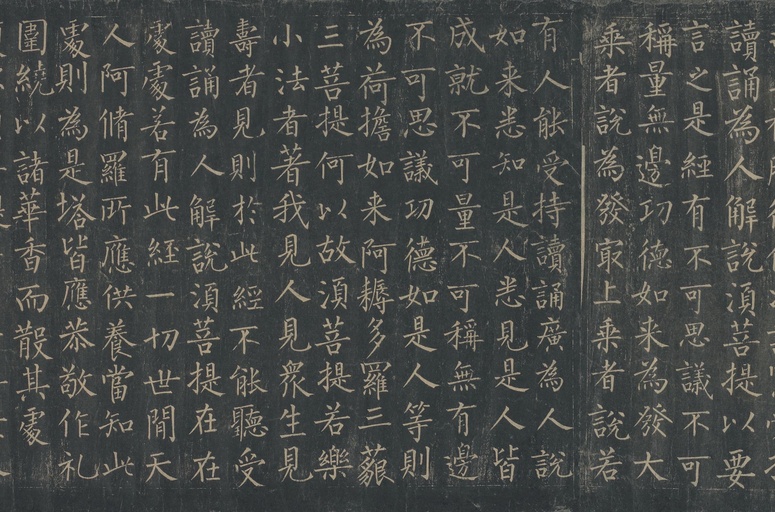 讀誦為人解說湏菩提以要
言之是經有不可思議不可
稱量無邊功德如来為發大
乘者說為發冣上乘者說若
有人能受持讀誦廣為人說
如来悉知是人悉見是人皆
成就不可量不可稱無有邊
不可思議功德如是人等則
為荷擔如来阿耨多羅三藐
三菩提何以故湏菩提若樂
小法者著我見人見衆生見
壽者見則於此經不能聽受
讀誦為人解說湏菩提在在
處處若有此経一切世間天
人阿脩羅所應供養當知此
處則為是塔皆應恭敬作礼
圍繞以諸華香而散其處